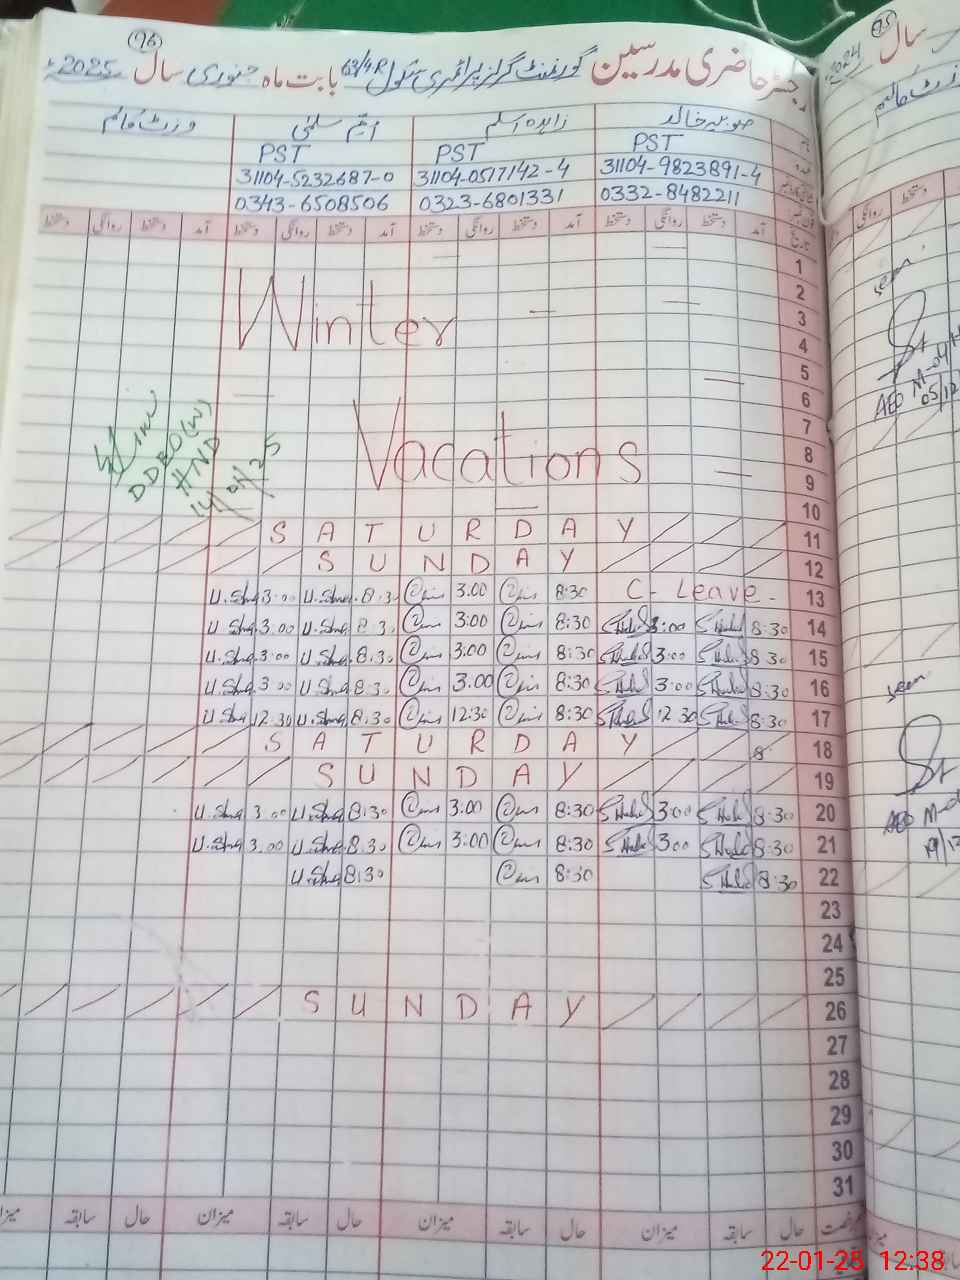 (96)
رجسٹر حاضری مدرسین گورنمنٹ گرلز پرائمری سکول 63/4R بابت ماہ جنوری سال 2025ء
صوبیہ خالد زاہدہ اسلم ایم سلمیٰ وزٹ کالم
PST PST PST
31104-9823891-4 31104-0517142-4 31104-5232687-0
0332-8482211 0323-6801331 0343-6508506
تاریخ آمد دستخط روانگی دستخط آمد دستخط روانگی دستخط آمد دستخط روانگی دستخط آمد دستخط روانگی دستخط
1
2
Winter
3
4
5
6
7
Vacations
8
9
10
DDEO (W)
HND
14/01/25
SATURDAY 11
SUNDAY 12
U.Sha 3:00 U.Sha 8:30 3.00 8:30 C- Leave - 13
U.Sha 3.00 U.Sha 8:30 3:00 8:30 3:00 8:30 14
U.Sha 3:00 U.Sha 8:30 3:00 8:30 3:00 8:30 15
U.Sha 3:00 U.Sha 8:30 3:00 8:30 3:00 8:30 16
U.Sha 12.30 U.Sha 8:30 12:30 8:30 12:30 8:30 17
SATURDAY 8 18
SUNDAY 19
U.Sha 3.00 U.Sha 8:30 3.00 8:30 3:00 8:30 20
U.Sha 3.00 U.Sha 8:30 3:00 8:30 3:00 8:30 21
U.Sha 8:30 8:30 8:30 22
23
24
25
SUNDAY 26
27
28
29
30
31
حال سابقہ میزان حال سابقہ میزان حال سابقہ میزان حال سابقہ میزان
(95)
سال
2024
وزٹ کالم
روانگی دستخط
seen
AEO M-04/H
05/12
seen
AEO M-0
19/12
22-01-25 12:38